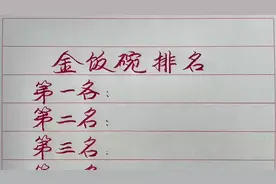 金饭碗排名
第一各:
第二名:
第三名: